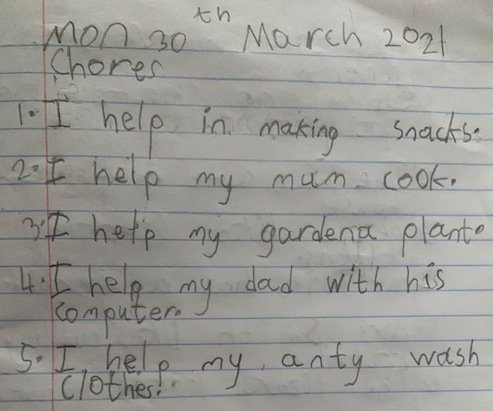 Mon 30th March 2021
Chores
1. I help in making snacks.
2. I help my mum cook.
3. I help my gardena plant.
4. I help my dad with his
computer.
5. I help my anty wash
clothes.